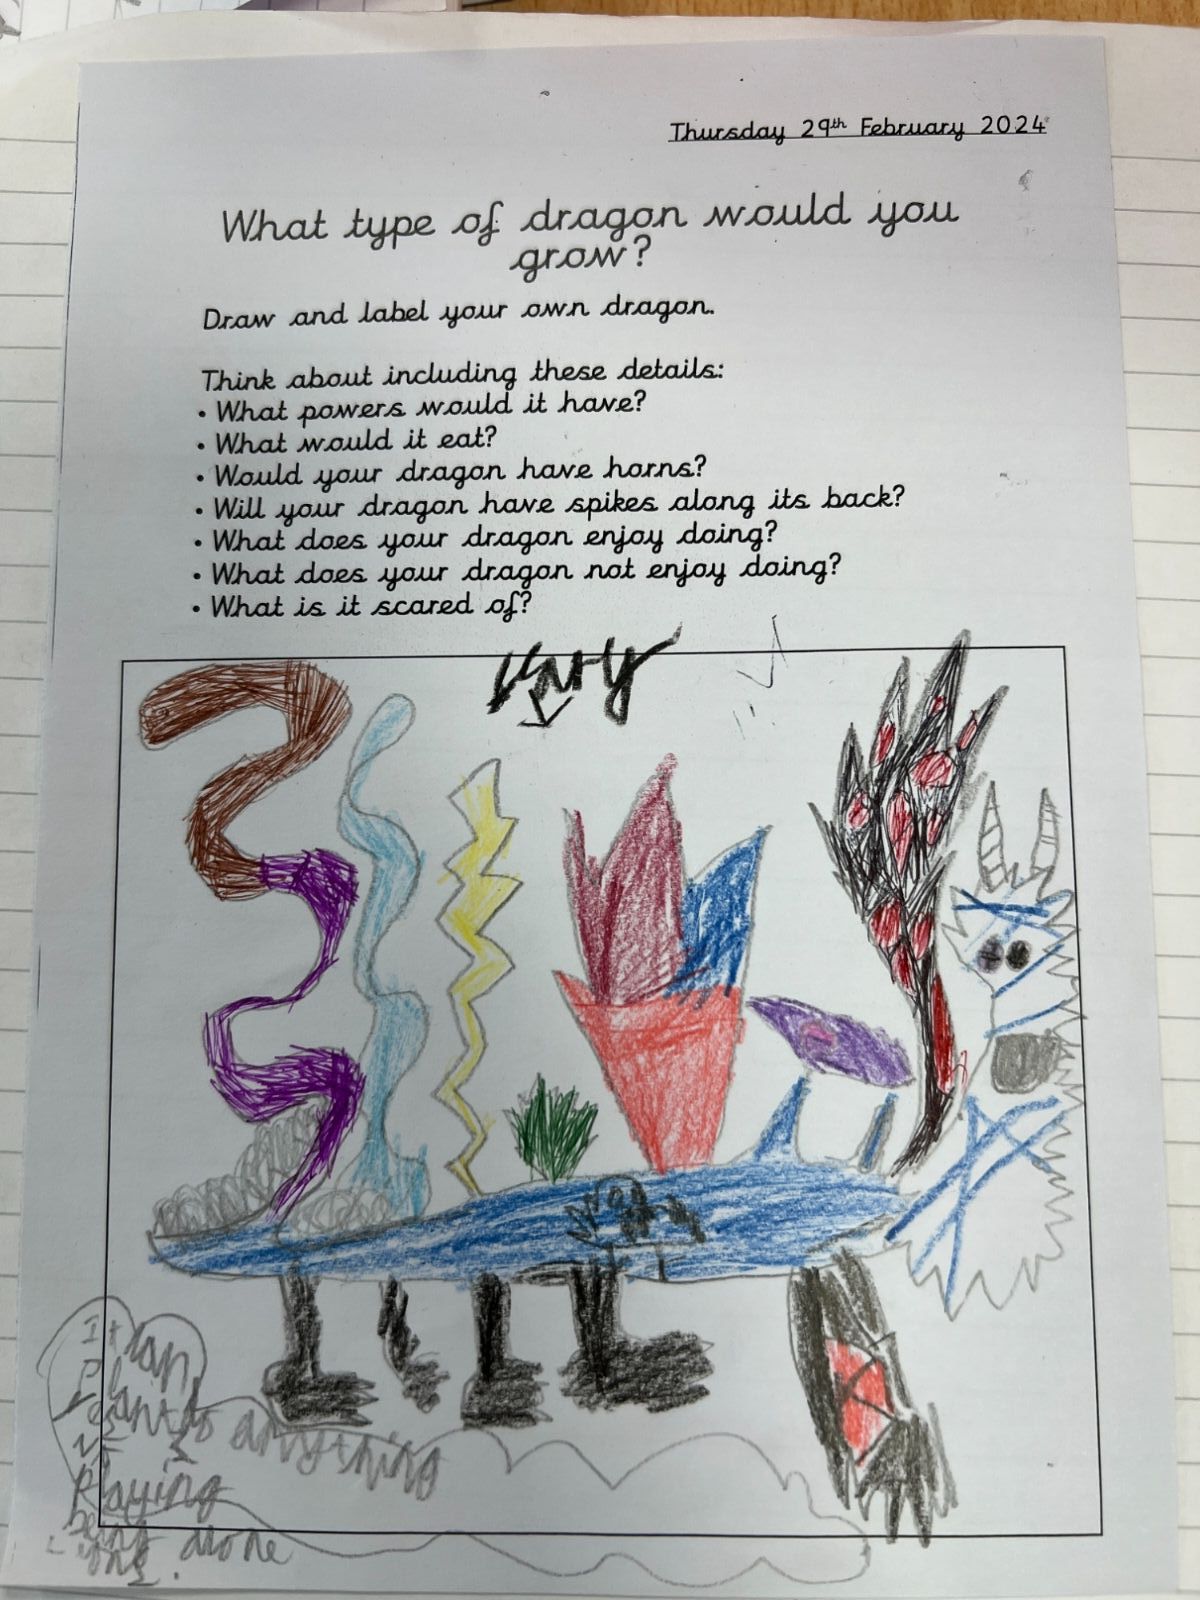 Thursday 29th February 2024
What type of dragon would you
grow?
Draw and label your own dragon.
Think about including these details:
• What powers would it have?
• What would it eat?
• Would your dragon have horns?
• Will your dragon have spikes along its back?
• What does your dragon enjoy doing?
• What does your dragon not enjoy doing?
• What is it scared of?
It
anything
Playing
alone